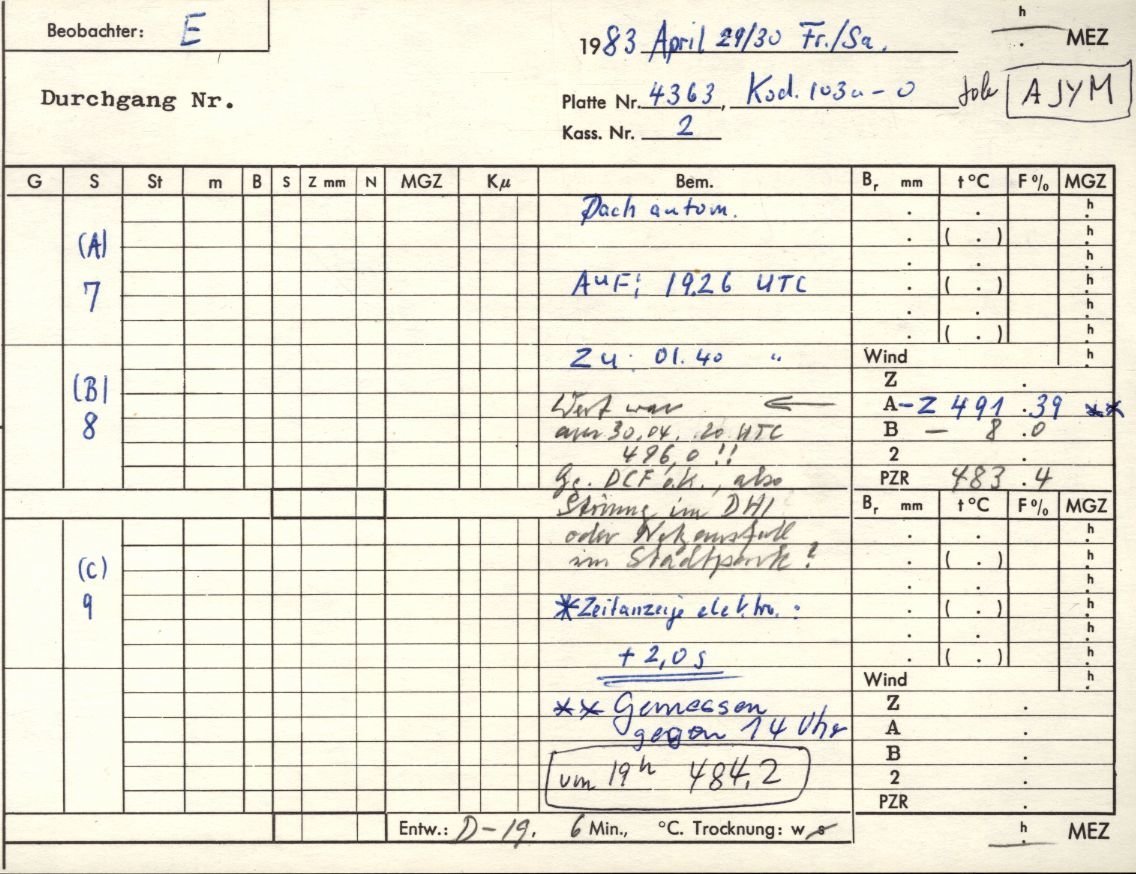 Beobachter: E
1983 April 29/30 Fr./Sa.
h
. MEZ
Durchgang Nr.
Platte Nr. 4363, Kod. 103a-0
AJYM
Kass. Nr. 2
G S St m B S Z mm N MGZ Kμ Bem. Br mm t °C F % MGZ
Dach autom.
(A)
7
Auf: 19.26 UTC
Zu: 01.40 "
Wind
(B)
8
Z .
Wert war ← A-Z 491.39 **
am 30.04. 20 UTC B – 8.0
496,0 !! 2 .
Gg. DCF o.k., also PZR 483.4
Störung im DHI Br mm t °C F % MGZ
oder Netzausfall
im Stadtpark?
(C)
9
*Zeitanzeige elektro.:
+ 2,0 s
Wind
** Gemessen Z .
gegen 14 Uhr A .
B .
um 19h 484,2 2 .
PZR .
Entw.: D-19. 6 Min., °C. Trocknung: w s
h
. MEZ